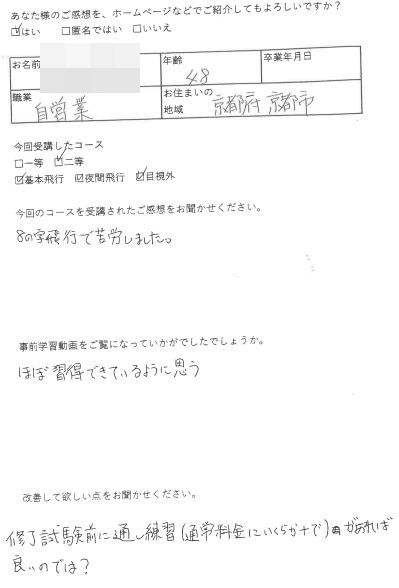 あなた様のご感想を、ホームページなどでご紹介してもよろしいですか？
☑はい □匿名ではい □いいえ
お名前 年齢 48 卒業年月日
職業 自営業 お住まいの地域 京都府 京都市
今回受講したコース
□一等 ☑二等
☑基本飛行 ☑夜間飛行 ☑目視外
今回のコースを受講されたご感想をお聞かせください。
8の字飛行で苦労しました。
事前学習動画をご覧になっていかがでしたでしょうか。
ほぼ習得できているように思う
改善して欲しい点をお聞かせください。
修了試験前に通し練習(通常料金にいくらか+で)日があれば
良いのでは？